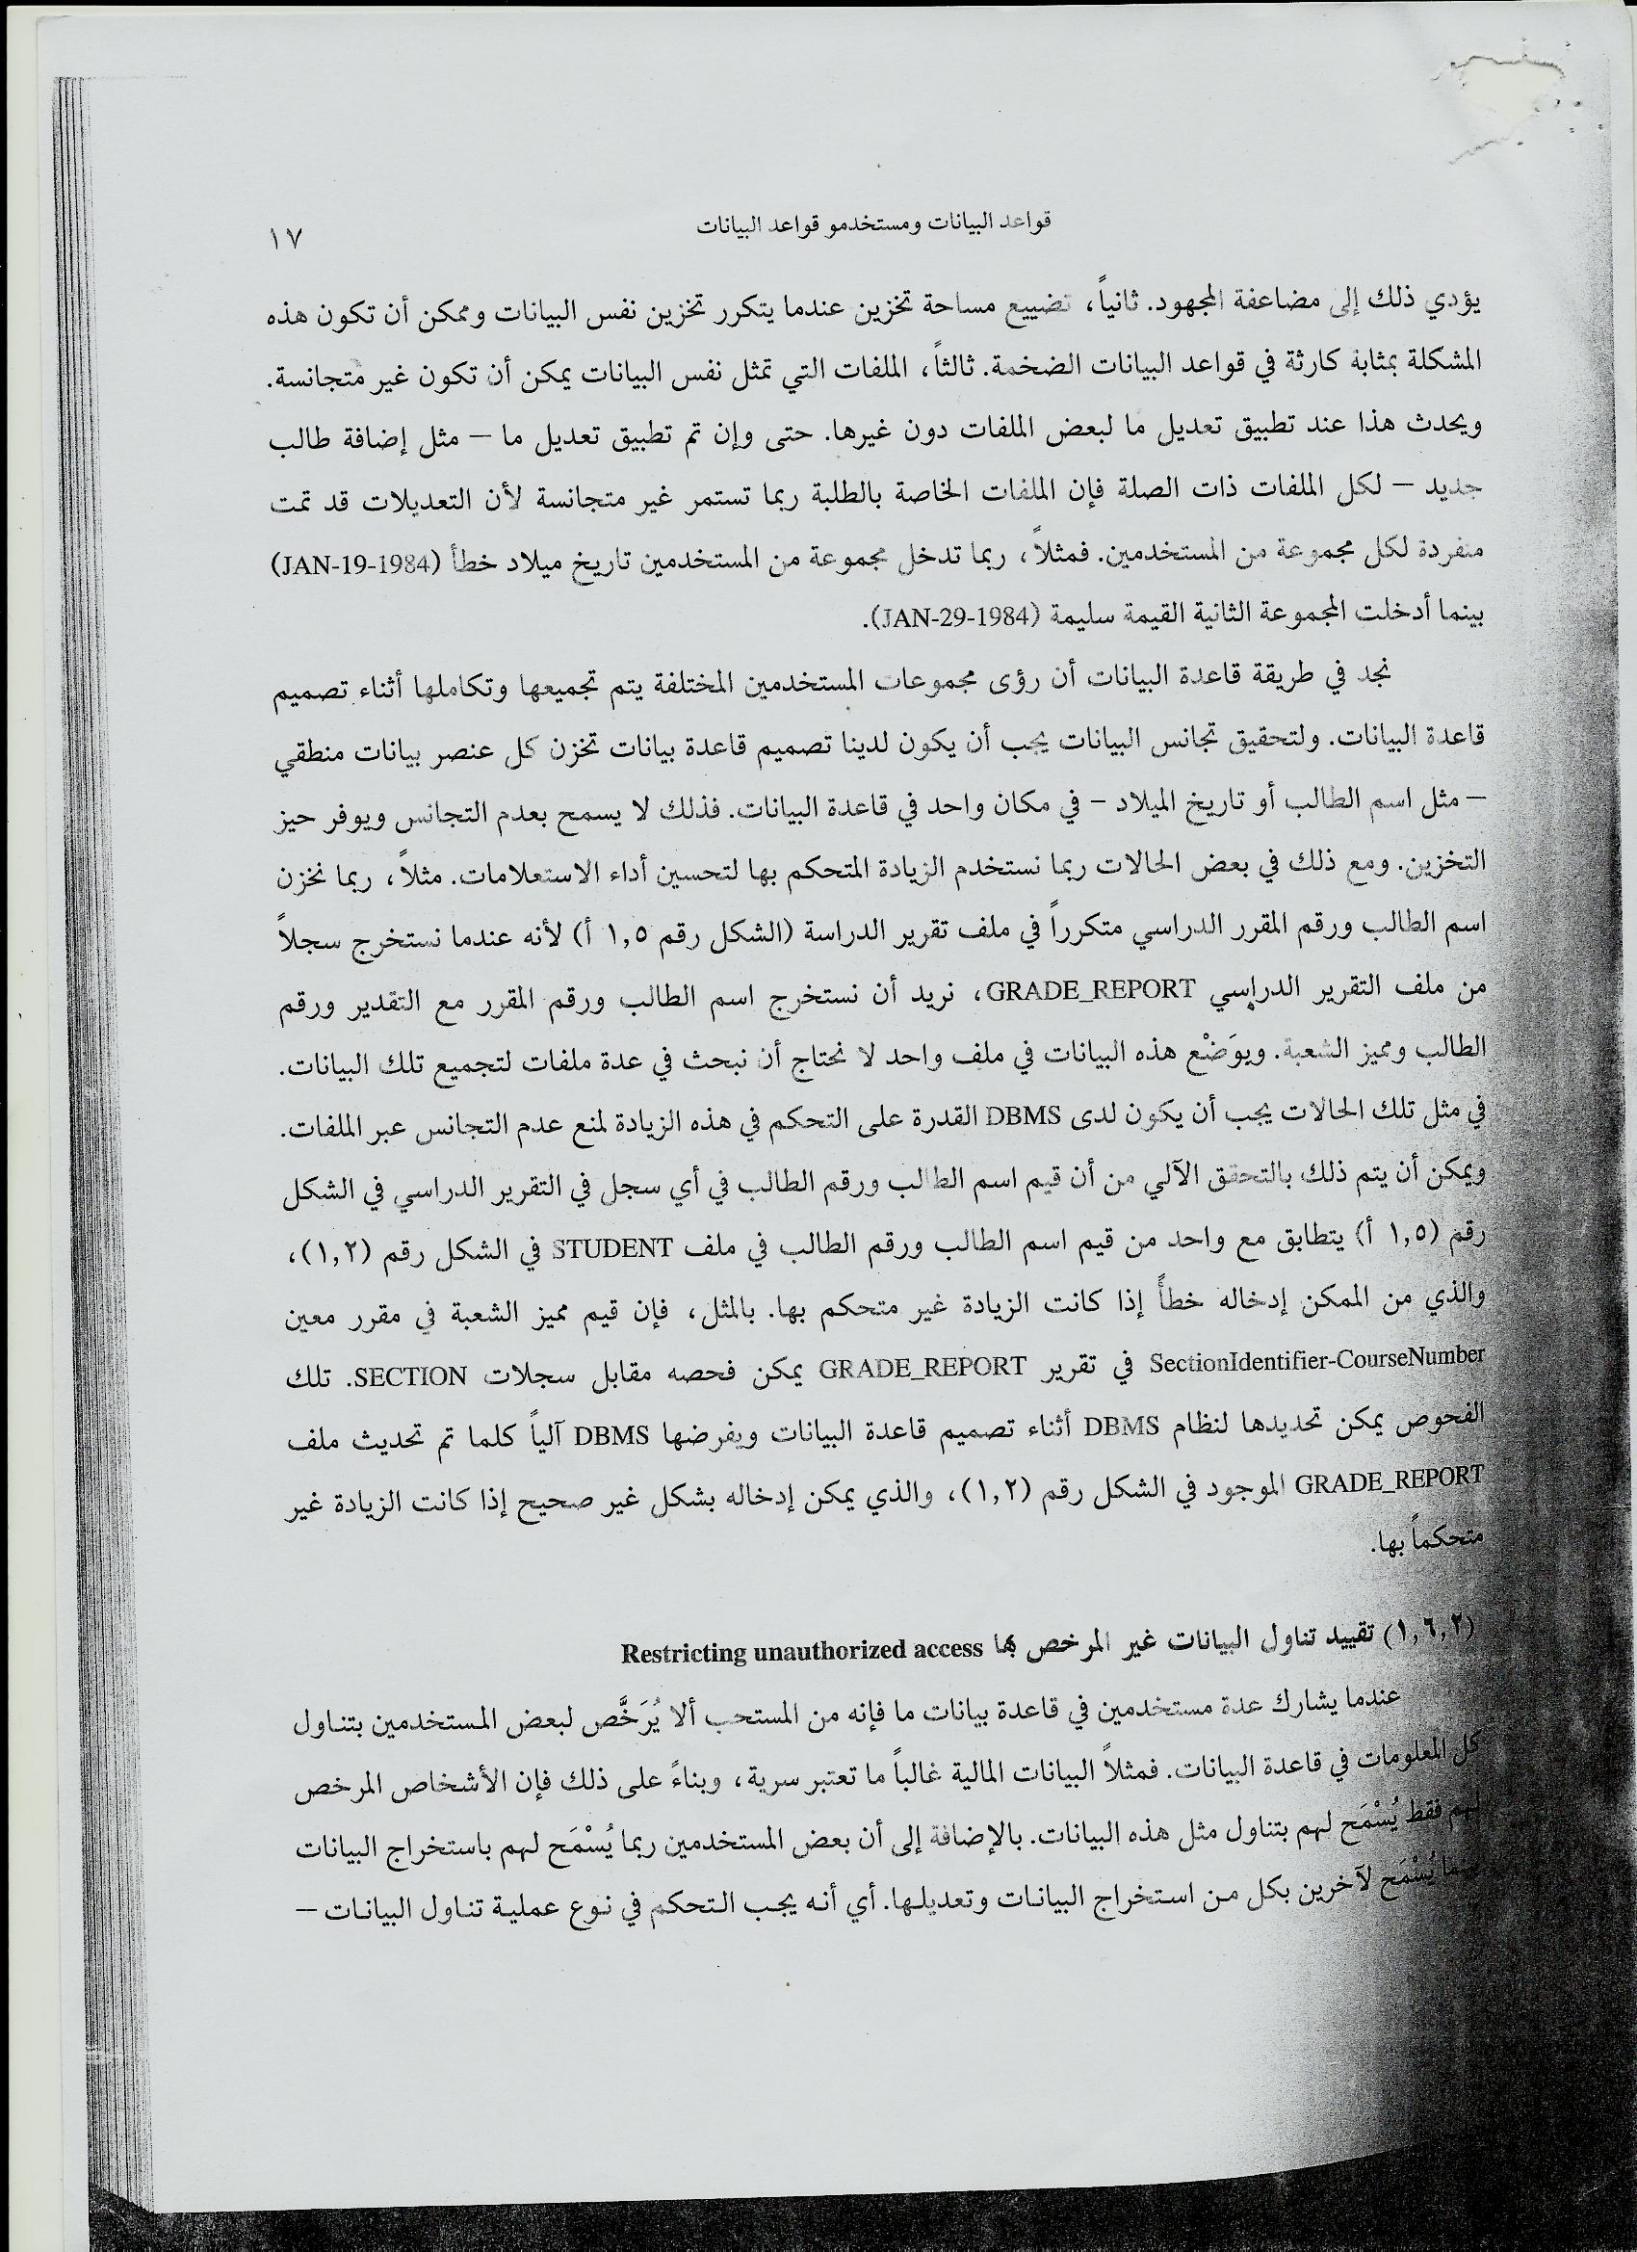 قواعد البيانات ومستخدمو قواعد البيانات
١٧
يؤدي ذلك إلى مضاعفة المجهود. ثانياً، تضييع مساحة تخزين عندما يتكرر تخزين نفس البيانات وممكن أن تكون هذه
المشكلة بمثابة كارثة في قواعد البيانات الضخمة. ثالثاً، الملفات التي تمثل نفس البيانات يمكن أن تكون غير متجانسة.
ويحدث هذا عند تطبيق تعديل ما لبعض الملفات دون غيرها. حتى وإن تم تطبيق تعديل ما – مثل إضافة طالب
جديد – لكل الملفات ذات الصلة فإن الملفات الخاصة بالطلبة ربما تستمر غير متجانسة لأن التعديلات قد تمت
منفردة لكل مجموعة من المستخدمين. فمثلاً، ربما تدخل مجموعة من المستخدمين تاريخ ميلاد خطأ (JAN-19-1984)
بينما أدخلت المجموعة الثانية القيمة سليمة (JAN-29-1984).
نجد في طريقة قاعدة البيانات أن رؤى مجموعات المستخدمين المختلفة يتم تجميعها وتكاملها أثناء تصميم
قاعدة البيانات. ولتحقيق تجانس البيانات يجب أن يكون لدينا تصميم قاعدة بيانات تخزن كل عنصر بيانات منطقي
– مثل اسم الطالب أو تاريخ الميلاد – في مكان واحد في قاعدة البيانات. فذلك لا يسمح بعدم التجانس ويوفر حيز
التخزين. ومع ذلك في بعض الحالات ربما نستخدم الزيادة المتحكم بها لتحسين أداء الاستعلامات. مثلاً، ربما نخزن
اسم الطالب ورقم المقرر الدراسي متكرراً في ملف تقرير الدراسة (الشكل رقم ١,٥ أ) لأنه عندما نستخرج سجلاً
من ملف التقرير الدراسي GRADE_REPORT، نريد أن نستخرج اسم الطالب ورقم المقرر مع التقدير ورقم
الطالب ومميز الشعبة. وبوَضْع هذه البيانات في ملف واحد لا نحتاج أن نبحث في عدة ملفات لتجميع تلك البيانات.
في مثل تلك الحالات يجب أن يكون لدى DBMS القدرة على التحكم في هذه الزيادة لمنع عدم التجانس عبر الملفات.
ويمكن أن يتم ذلك بالتحقق الآلي من أن قيم اسم الطالب ورقم الطالب في أي سجل في التقرير الدراسي في الشكل
رقم (١,٥ أ) يتطابق مع واحد من قيم اسم الطالب ورقم الطالب في ملف STUDENT في الشكل رقم (١,٢)،
والذي من الممكن إدخاله خطأً إذا كانت الزيادة غير متحكم بها. بالمثل، فإن قيم مميز الشعبة في مقرر معين
SectionIdentifier-CourseNumber في تقرير GRADE_REPORT يمكن فحصه مقابل سجلات SECTION. تلك
الفحوص يمكن تحديدها لنظام DBMS أثناء تصميم قاعدة البيانات ويفرضها DBMS آلياً كلما تم تحديث ملف
GRADE_REPORT الموجود في الشكل رقم (١,٢)، والذي يمكن إدخاله بشكل غير صحيح إذا كانت الزيادة غير
متحكماً بها.
(١,٦,٢) تقييد تناول البيانات غير المرخص بها Restricting unauthorized access
عندما يشارك عدة مستخدمين في قاعدة بيانات ما فإنه من المستحب ألا يُرَخَّص لبعض المستخدمين بتناول
كل المعلومات في قاعدة البيانات. فمثلاً البيانات المالية غالباً ما تعتبر سرية، وبناءً على ذلك فإن الأشخاص المرخص
لهم فقط يُسْمَح لهم بتناول مثل هذه البيانات. بالإضافة إلى أن بعض المستخدمين ربما يُسْمَح لهم باستخراج البيانات
بينما يُسْمَح لآخرين بكل من استخراج البيانات وتعديلها. أي أنه يجب التحكم في نوع عملية تناول البيانات –